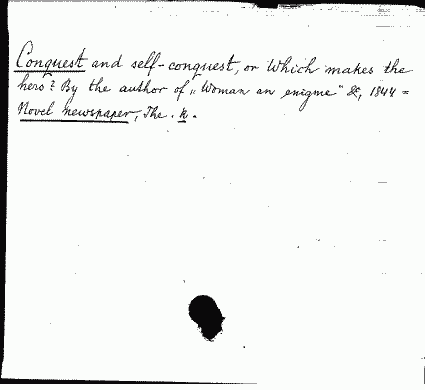 Conquest and self-conquest, or Which makes the
hero? By the author of „Woman an enigme" &, 1844 =
Novel newspaper, The . k.